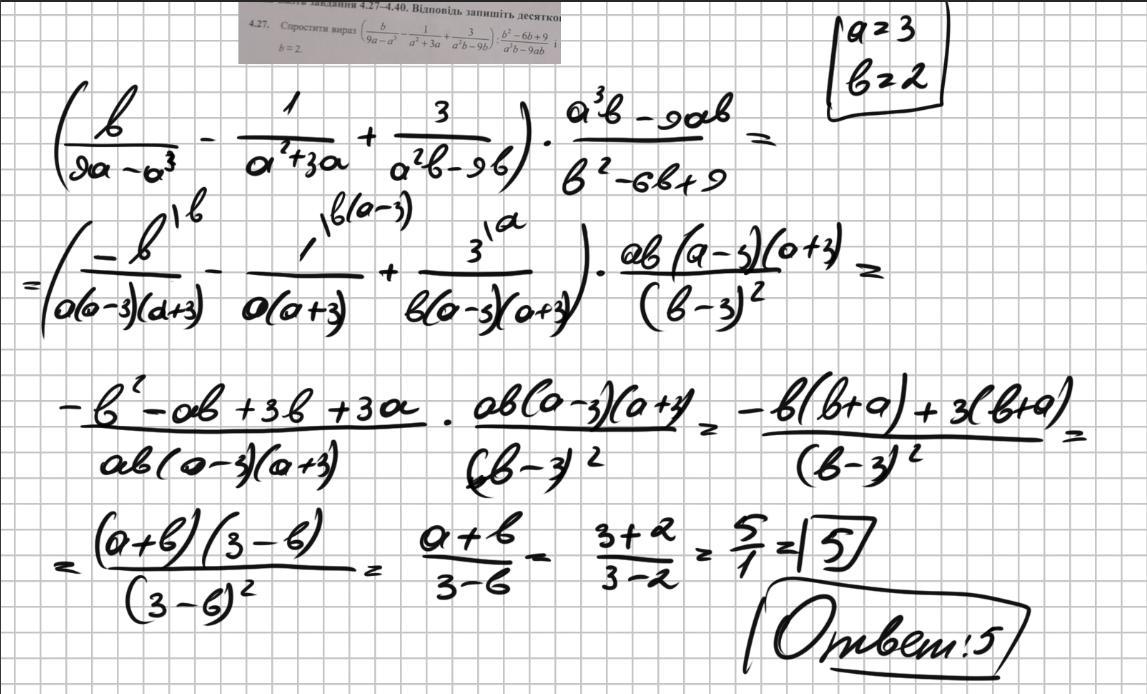 завдання 4.27–4.40. Відповідь запишіть десятко
4.27. Спростити вираз (b/(9a−a³) − 1/(a²+3a) + 3/(a²b−9b)) : (b²−6b+9)/(a³b−9ab) і
b = 2.
a = 3
b = 2
(b/(9a−a³) − 1/(a²+3a) + 3/(a²b−9b)) · (a³b−9ab)/(b²−6b+9) =
= (−b\b/(a(a−3)(a+3)) − 1\b(a−3)/(a(a+3)) + 3\a/(b(a−3)(a+3))) · ab(a−3)(a+3)/(b−3)² =
(−b²−ab+3b+3a)/(ab(a−3)(a+3)) · ab(a−3)(a+3)/(b−3)² = (−b(b+a)+3(b+a))/(b−3)² =
= (a+b)(3−b)/(3−b)² = (a+b)/(3−b) = (3+2)/(3−2) = 5/1 = 5
Ответ: 5